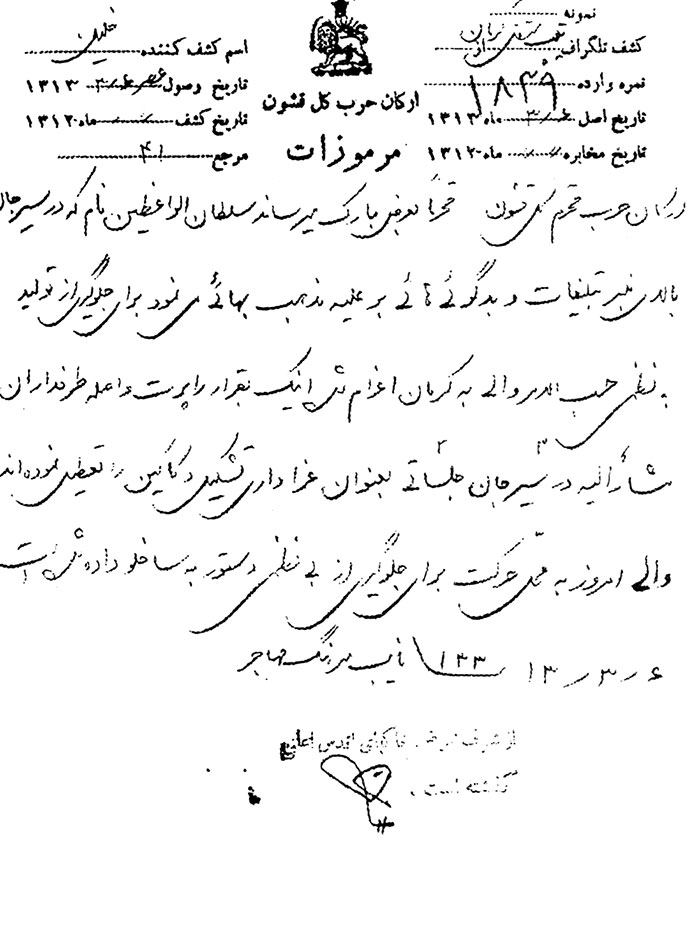 نمونه
کشف تلگراف از تیپ مستقل کرمان
نمره وارده ۱۸۴۹
تاریخ اصل ۳/۶ ماه ۱۳۱۳
تاریخ مخابره ماه ۱۳۱۲
ارکان حرب کل قشون
مرموزات
اسم کشف کننده
تاریخ وصول ۱۳۱۳
تاریخ کشف ماه ۱۳۱۲
مرجع ۴۱
ارکان حرب محترم کل قشون محترماً بعرض مبارک میرساند سلطان الواعظین نام که در سیرجان
بالای منبر تبلیغات و بدگوئی هائی بر علیه مذهب بهائی می نمود برای جلوگیری از تولید
بی نظمی حسب الامر والی به کرمان اعزام شده اینک بقرار راپرت واصله طرفداران
مشارالیه در سیرجان جلساتی بعنوان عزاداری تشکیل و دکاکین را تعطیل نموده اند
والی امروز به محل حرکت برای جلوگیری از بی نظمی دستور به ساخلو داده شده است
۶ ر ۳ ر ۱۳ ۱۳۳ نایب سرهنگ مهاجر
از شرف عرض خاکپای اقدس اعلی
گذشته است.